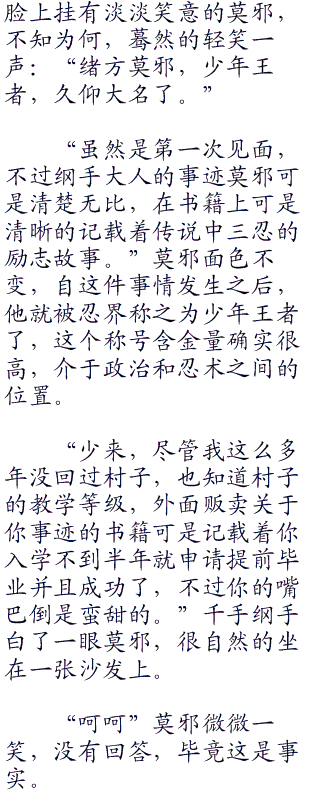 脸上挂有淡淡笑意的莫邪，
不知为何，蓦然的轻笑一
声：“绪方莫邪，少年王
者，久仰大名了。”
“虽然是第一次见面，
不过纲手大人的事迹莫邪可
是清楚无比，在书籍上可是
清晰的记载着传说中三忍的
励志故事。”莫邪面色不
变，自这件事情发生之后，
他就被忍界称之为少年王者
了，这个称号含金量确实很
高，介于政治和忍术之间的
位置。
“少来，尽管我这么多
年没回过村子，也知道村子
的教学等级，外面贩卖关于
你事迹的书籍可是记载着你
入学不到半年就申请提前毕
业并且成功了，不过你的嘴
巴倒是蛮甜的。”千手纲手
白了一眼莫邪，很自然的坐
在一张沙发上。
“呵呵”莫邪微微一
笑，没有回答，毕竟这是事
实。